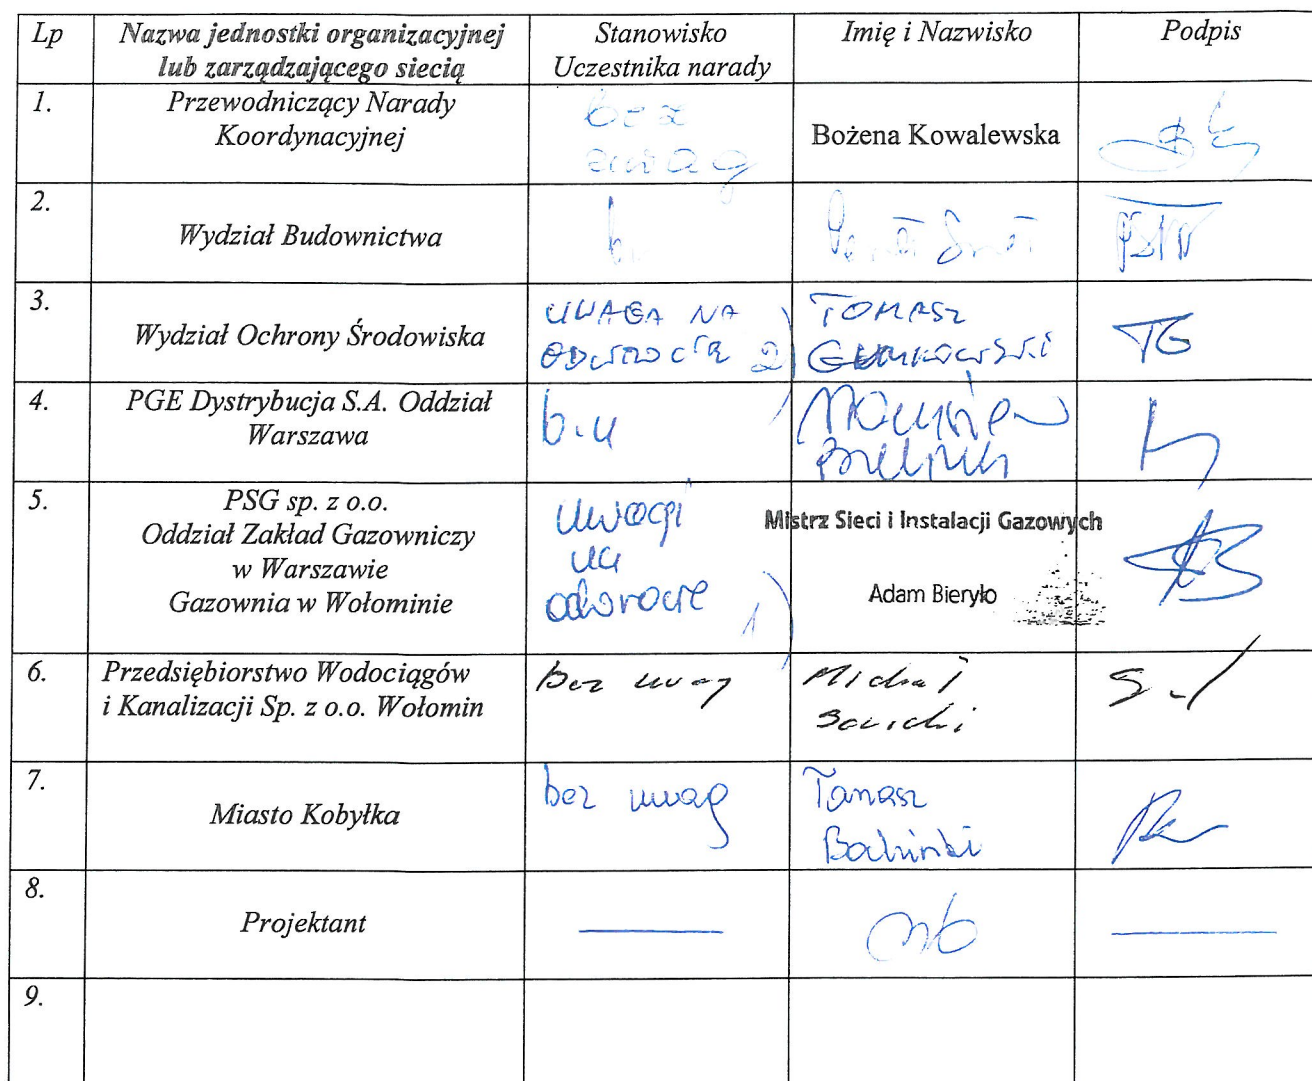 Lp
Nazwa jednostki organizacyjnej
lub zarządzającego siecią
Stanowisko
Uczestnika narady
Imię i Nazwisko
Podpis
1.
Przewodniczący Narady
Koordynacyjnej
bez
uwag
Bożena Kowalewska
2.
Wydział Budownictwa
3.
Wydział Ochrony Środowiska
UWAGA NA
ODWROCIE 2)
TOMASZ
TG
4.
PGE Dystrybucja S.A. Oddział
Warszawa
b.u
5.
PSG sp. z o.o.
Oddział Zakład Gazowniczy
w Warszawie
Gazownia w Wołominie
Uwagi
na
odwrocie 1)
Mistrz Sieci i Instalacji Gazowych
Adam Bieryło
6.
Przedsiębiorstwo Wodociągów
i Kanalizacji Sp. z o.o. Wołomin
bez uwag
Michał
7.
Miasto Kobyłka
bez uwag
Tomasz
8.
Projektant
nb
9.